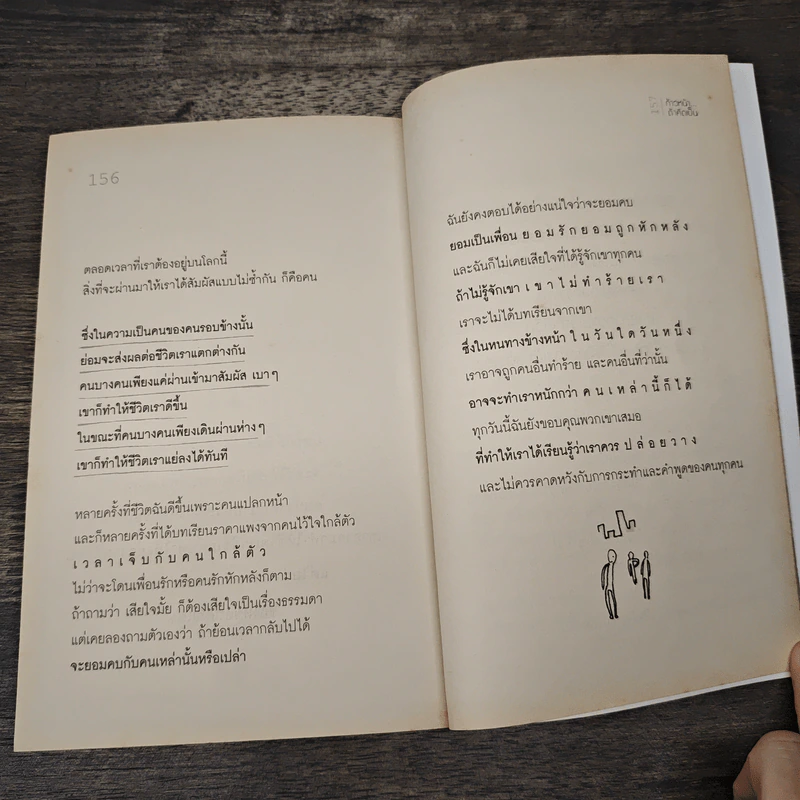 156
ตลอดเวลาที่เราต้องอยู่บนโลกนี้
สิ่งที่จะผ่านมาให้เราได้สัมผัสแบบไม่ซ้ำกัน ก็คือคน
ซึ่งในความเป็นคนของคนรอบข้างนั้น
ย่อมจะส่งผลต่อชีวิตเราแตกต่างกัน
คนบางคนเพียงแค่ผ่านเข้ามาสัมผัส เบา ๆ
เขาก็ทำให้ชีวิตเราดีขึ้น
ในขณะที่คนบางคนเพียงเดินผ่านห่าง ๆ
เขาก็ทำให้ชีวิตเราแย่ลงได้ทันที
หลายครั้งที่ชีวิตฉันดีขึ้นเพราะคนแปลกหน้า
และก็หลายครั้งที่ได้บทเรียนราคาแพงจากคนไว้ใจใกล้ตัว
เ ว ล า เ จ็ บ กั บ ค น ใ ก ล้ ตั ว
ไม่ว่าจะโดนเพื่อนรักหรือคนรักหักหลังก็ตาม
ถ้าถามว่า เสียใจมั้ย ก็ต้องเสียใจเป็นเรื่องธรรมดา
แต่เคยลองถามตัวเองว่า ถ้าย้อนเวลากลับไปได้
จะยอมคบกับคนเหล่านั้นหรือเปล่า
ก้าวหน้า
ถ้าคิดเป็น
ฉันยังคงตอบได้อย่างแน่ใจว่าจะยอมคบ
ยอมเป็นเพื่อน ย อ ม รั ก ย อ ม ถู ก หั ก ห ลั ง
และฉันก็ไม่เคยเสียใจที่ได้รู้จักเขาทุกคน
ถ้าไม่รู้จักเขา เ ข า ไ ม่ ทำ ร้ า ย เ ร า
เราจะไม่ได้บทเรียนจากเขา
ซึ่งในหนทางข้างหน้า ใ น วั น ใ ด วั น ห นึ่ ง
เราอาจถูกคนอื่นทำร้าย และคนอื่นที่ว่านั้น
อาจจะทำเราหนักกว่า ค น เ ห ล่ า นี้ ก็ ไ ด้
ทุกวันนี้ฉันยังขอบคุณพวกเขาเสมอ
ที่ทำให้เราได้เรียนรู้ว่าเราควร ป ล่ อ ย ว า ง
และไม่ควรคาดหวังกับการกระทำและคำพูดของคนทุกคน